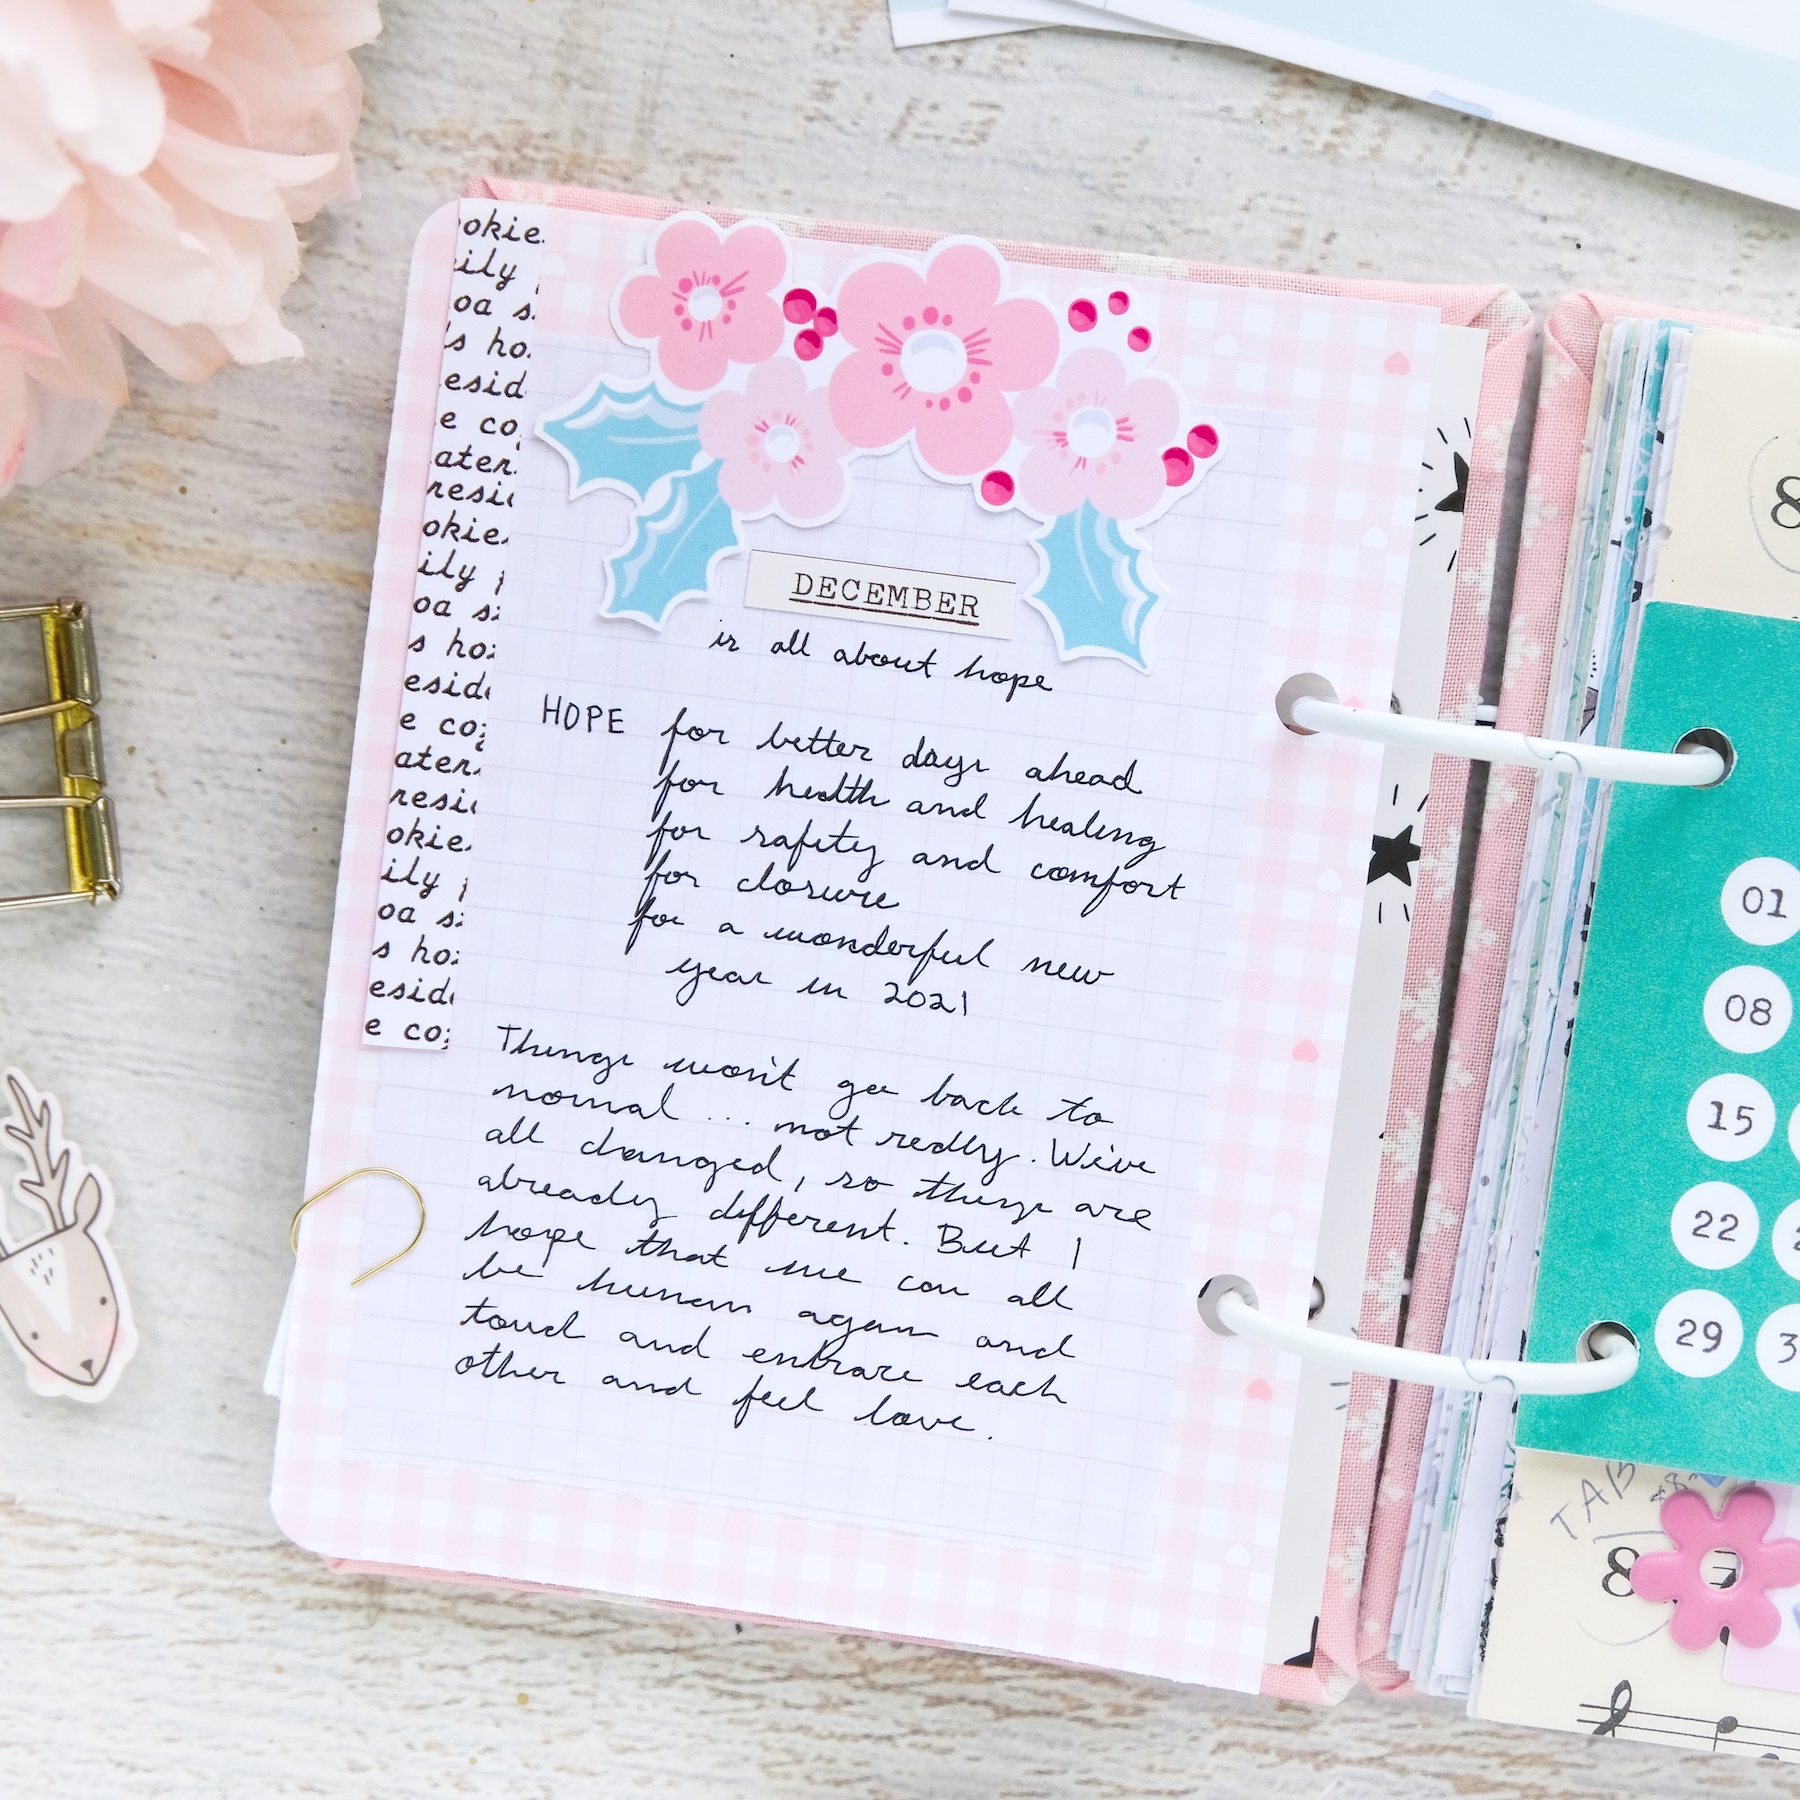 okie
ily
oa s
s ho
esid
e co
ater
resi
okie
ily
oa s
s ho
esid
e co
ater
resi
okie
ily
oa s
s ho
esid
e co
DECEMBER
is all about hope
HOPE for better days ahead
for health and healing
for safety and comfort
for closure
for a wonderful new
year in 2021
Things won't go back to
normal ... not really. We've
all changed, so things are
already different. But I
hope that we can all
be human again and
touch and embrace each
other and feel love.
8
01
08
15
22
29
3
TAB
8